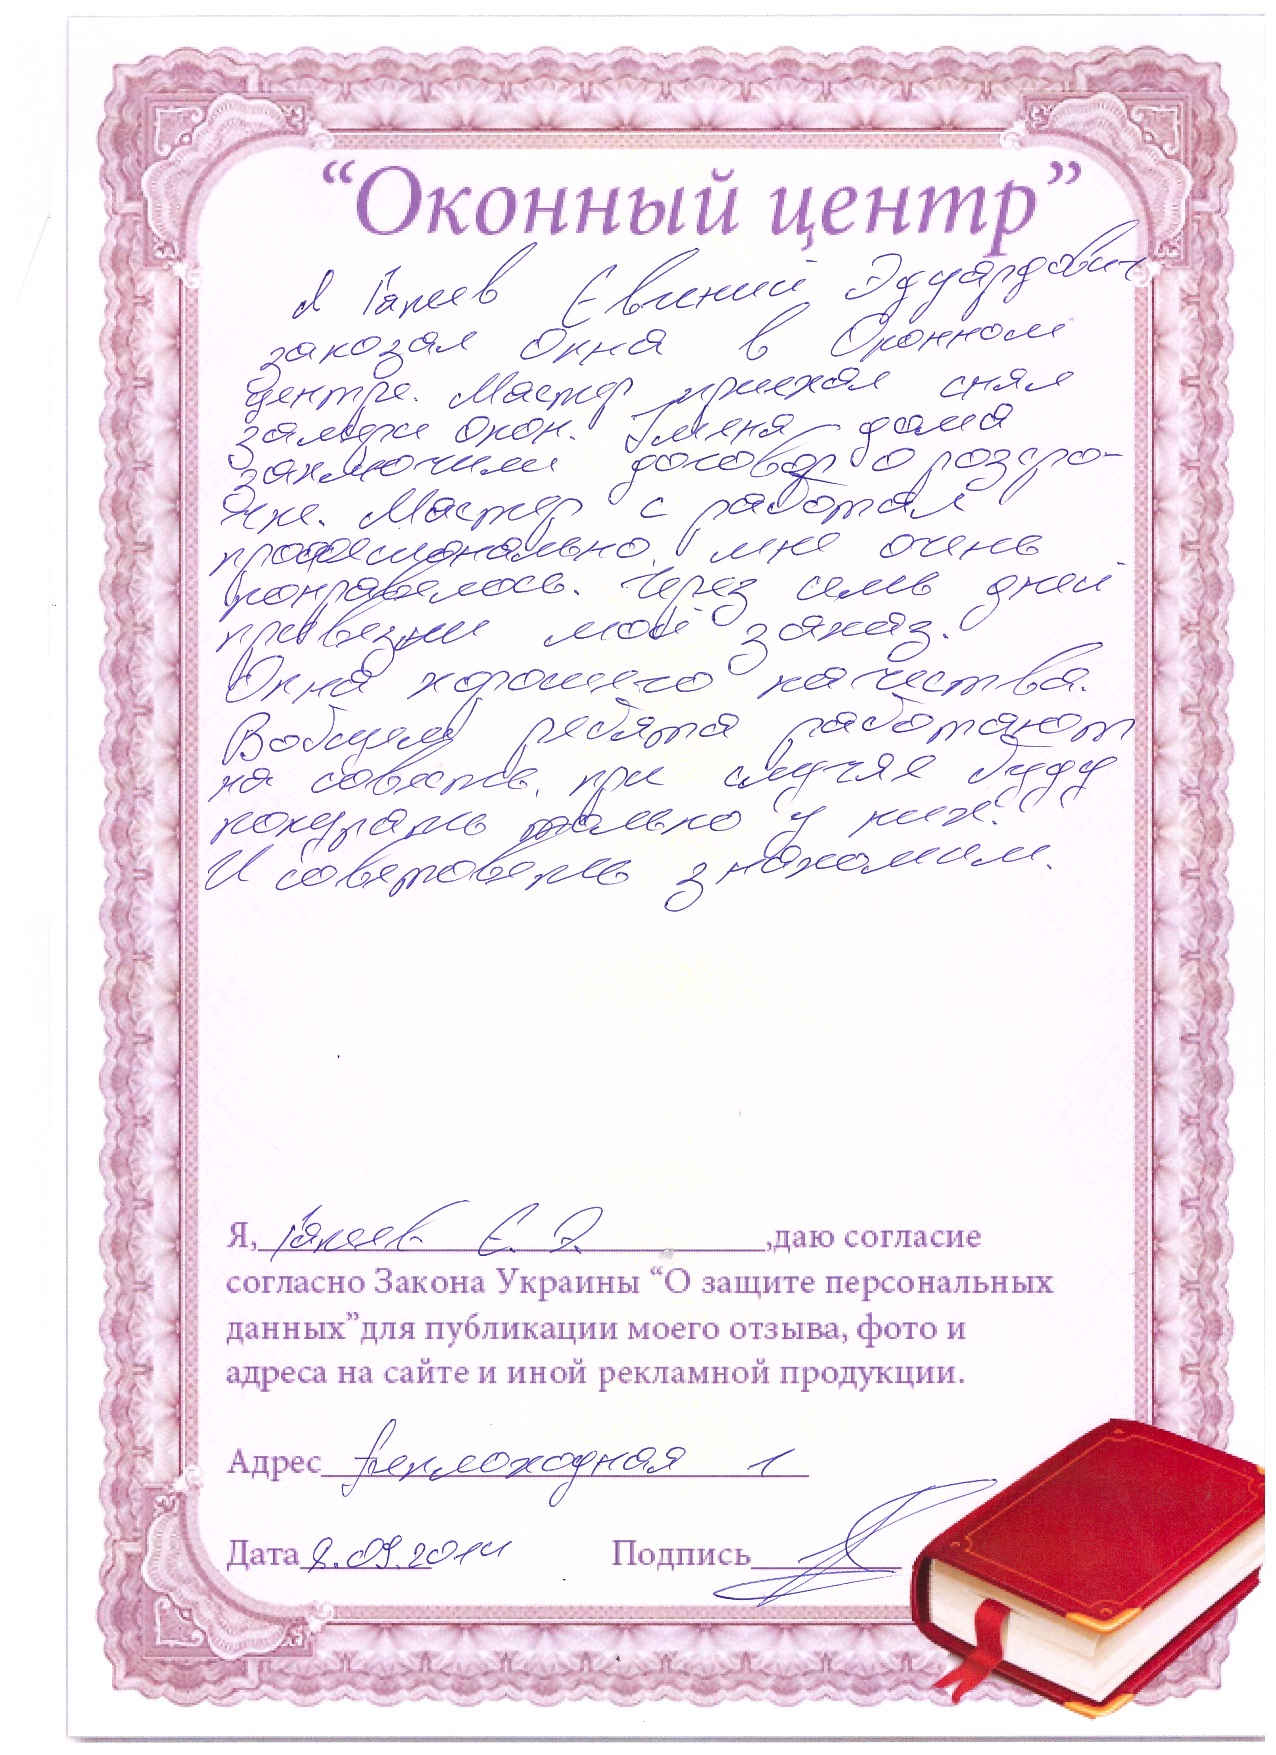 “Оконный центр”
Я Гапеев Евгиний Эдуардович
закозал окна в Оконном
центре. Мастер приехал снял
замеры окон. У меня дома
заключили договор о розсро-
чке. Мастер с работал
профессионально, мне очень
понравелось. Через семь дней
привезли мой заказ.
Окна хорошего качества.
Вобщем ребята работают
на совесть, при случае буду
покупать только у них!
И советовать знакомим.
Я, Гапеев Е. Э. ,даю согласие
согласно Закона Украины “О защите персональных
данных”для публикации моего отзыва, фото и
адреса на сайте и иной рекламной продукции.
Адрес Теплоходная 1
Дата 8.09.2014 Подпись